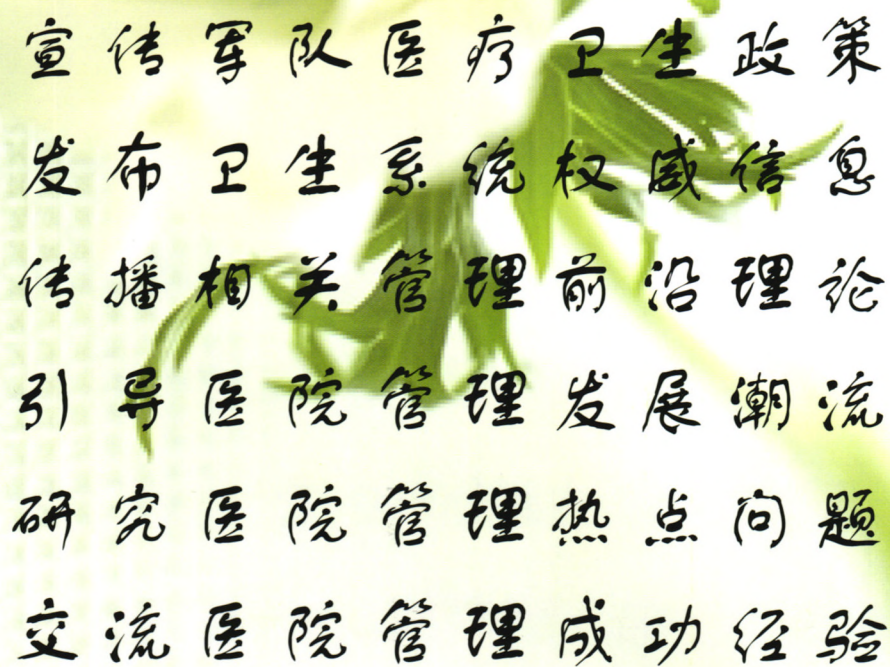 宣传军队医疗卫生政策
发布卫生系统权威信息
传播相关管理前沿理论
引导医院管理发展潮流
研究医院管理热点问题
交流医院管理成功经验